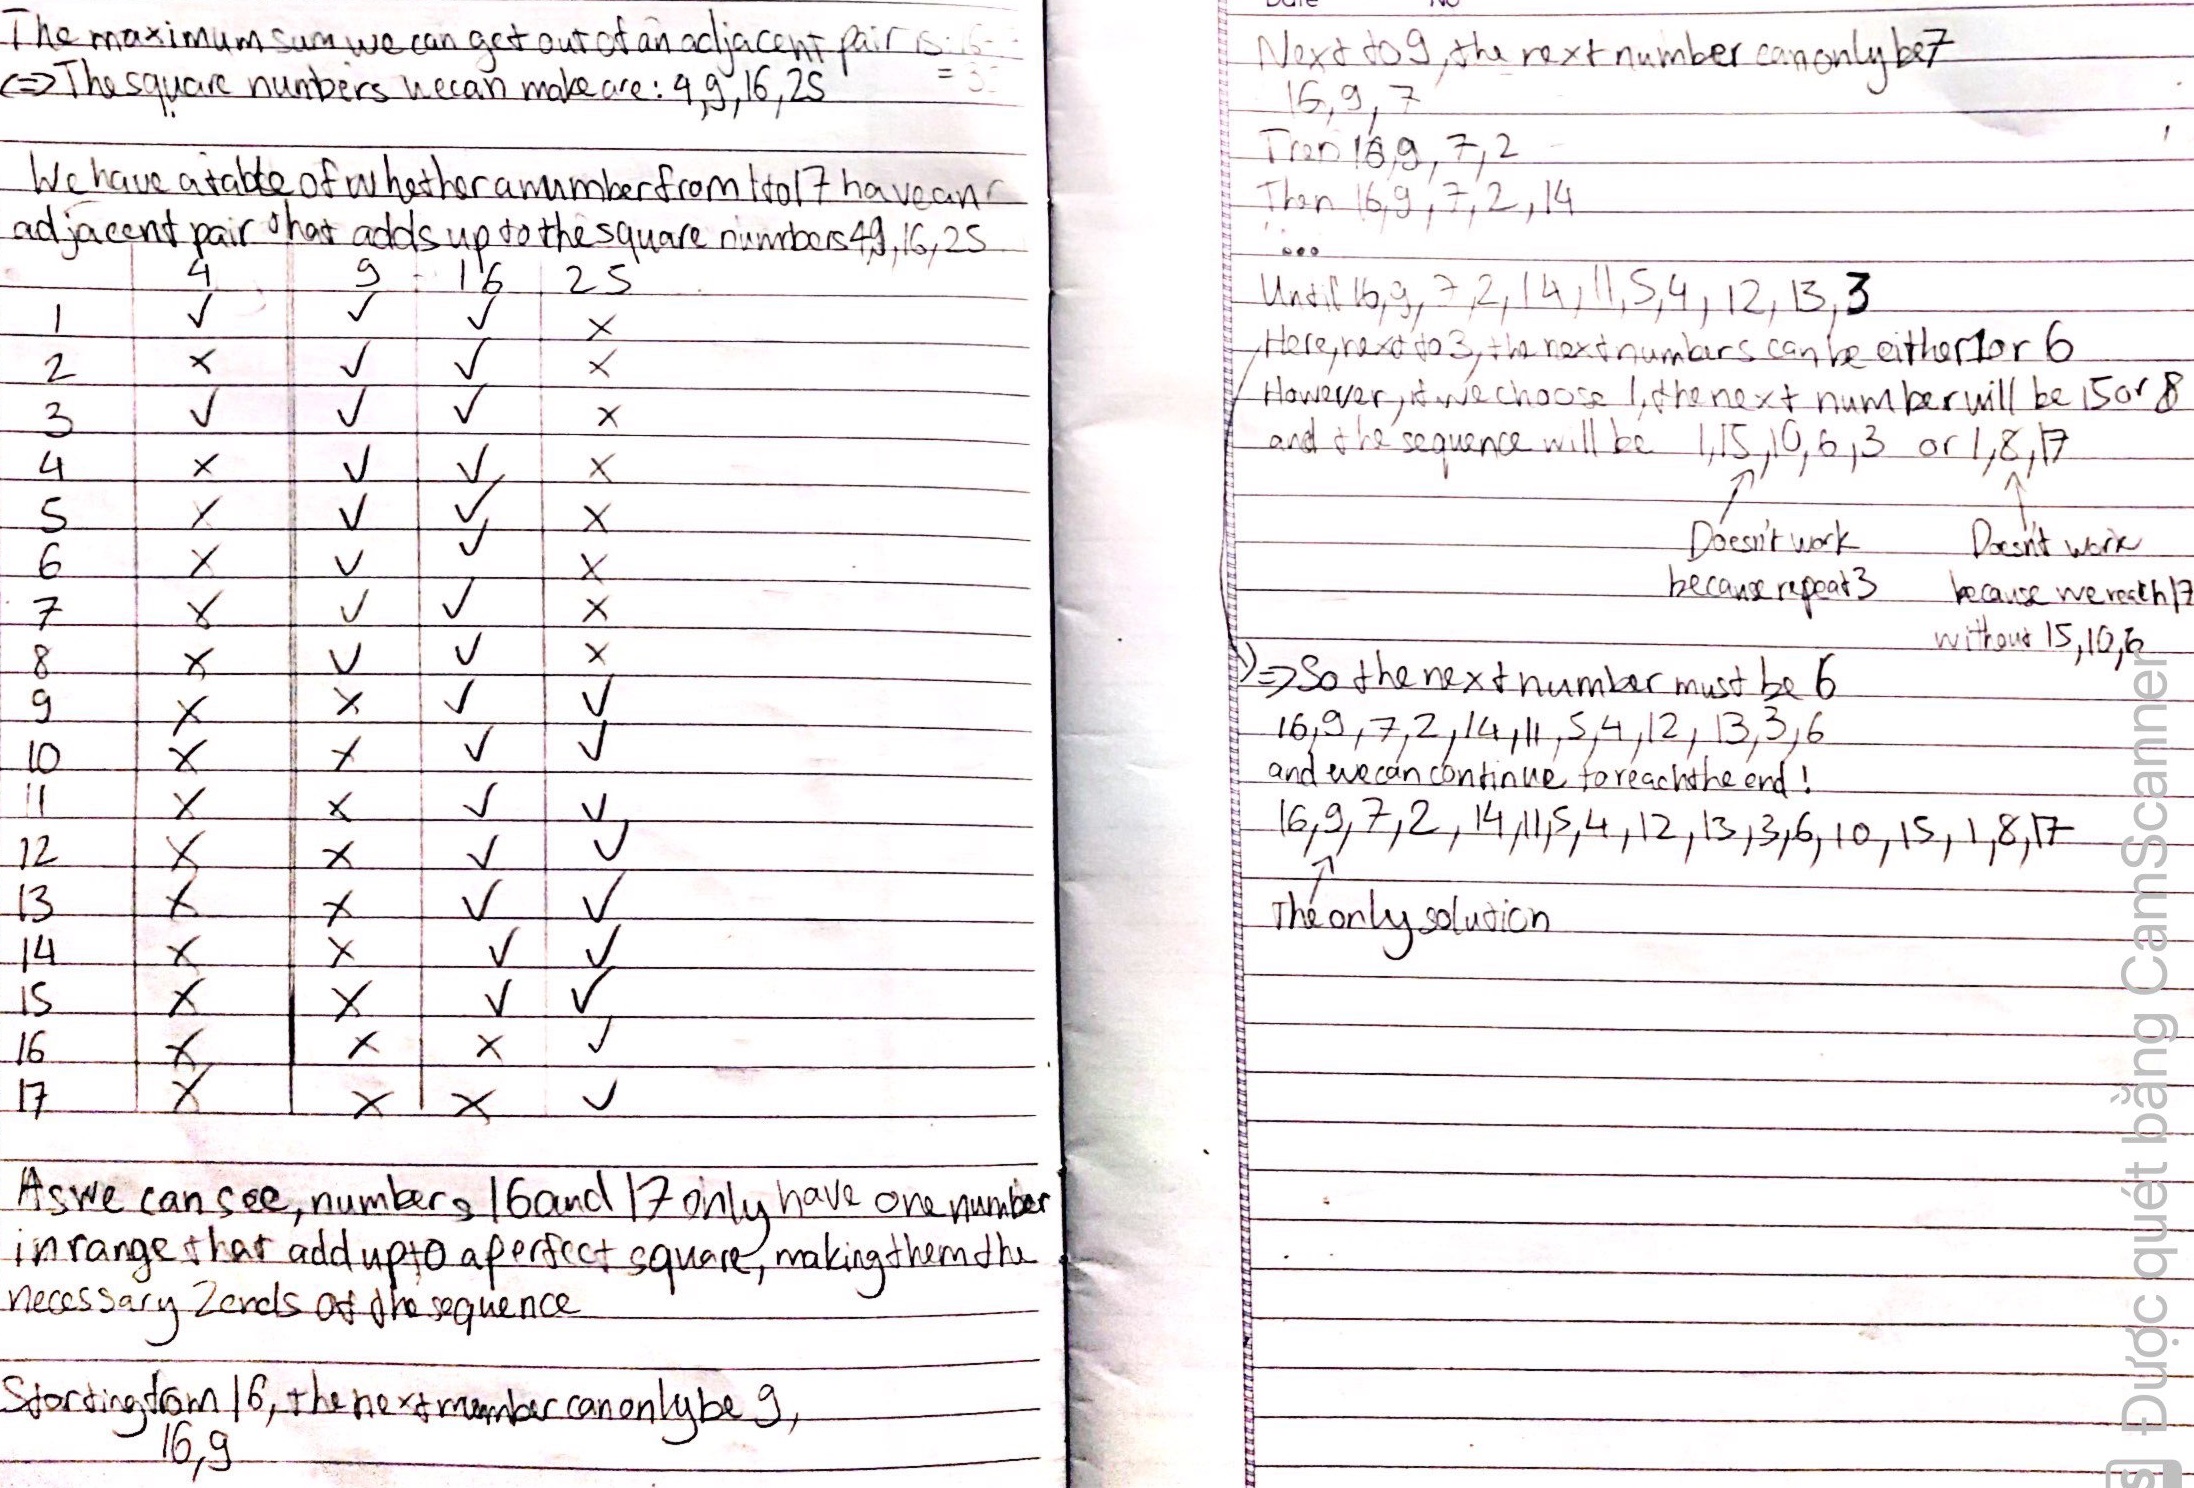 The maximum sum we can get out of an adjacent pair is: 16
= 3
<=> The square numbers we can make are: 4,9,16,25
We have a table of whether a number from 1 to 17 have an
adjacent pair that adds up to the square numbers 4,9,16,25
4 9 16 25
1 ✓ ✓ ✓ ×
2 × ✓ ✓ ×
3 ✓ ✓ ✓ ×
4 × ✓ ✓ ×
5 × ✓ ✓ ×
6 × ✓ ✓ ×
7 × ✓ ✓ ×
8 × ✓ ✓ ×
9 × × ✓ ✓
10 × × ✓ ✓
11 × × ✓ ✓
12 × × ✓ ✓
13 × × ✓ ✓
14 × × ✓ ✓
15 × × ✓ ✓
16 × × × ✓
17 × × × ✓
As we can see, numbers 16 and 17 only have one number
in range that add up to a perfect square, making them the
necessary 2 ends of the sequence
Starting from 16, the next number can only be 9,
16,9
Date No
Next to 9, the next number can only be 7
16,9,7
Then 16,9,7,2
Then 16,9,7,2,14
...
Until 16,9,7,2,14,11,5,4,12,13,3
Here, next to 3, the next numbers can be either 1 or 6
However, if we choose 1, the next number will be 15 or 8
and the sequence will be 1,15,10,6,3 or 1,8,17
Doesn't work Doesn't work
because repeat 3 because we reach 17
without 15,10,6
=> So the next number must be 6
16,9,7,2,14,11,5,4,12,13,3,6
and we can continue to reach the end!
16,9,7,2,14,11,5,4,12,13,3,6,10,15,1,8,17
The only solution
CS Được quét bằng CamScanner